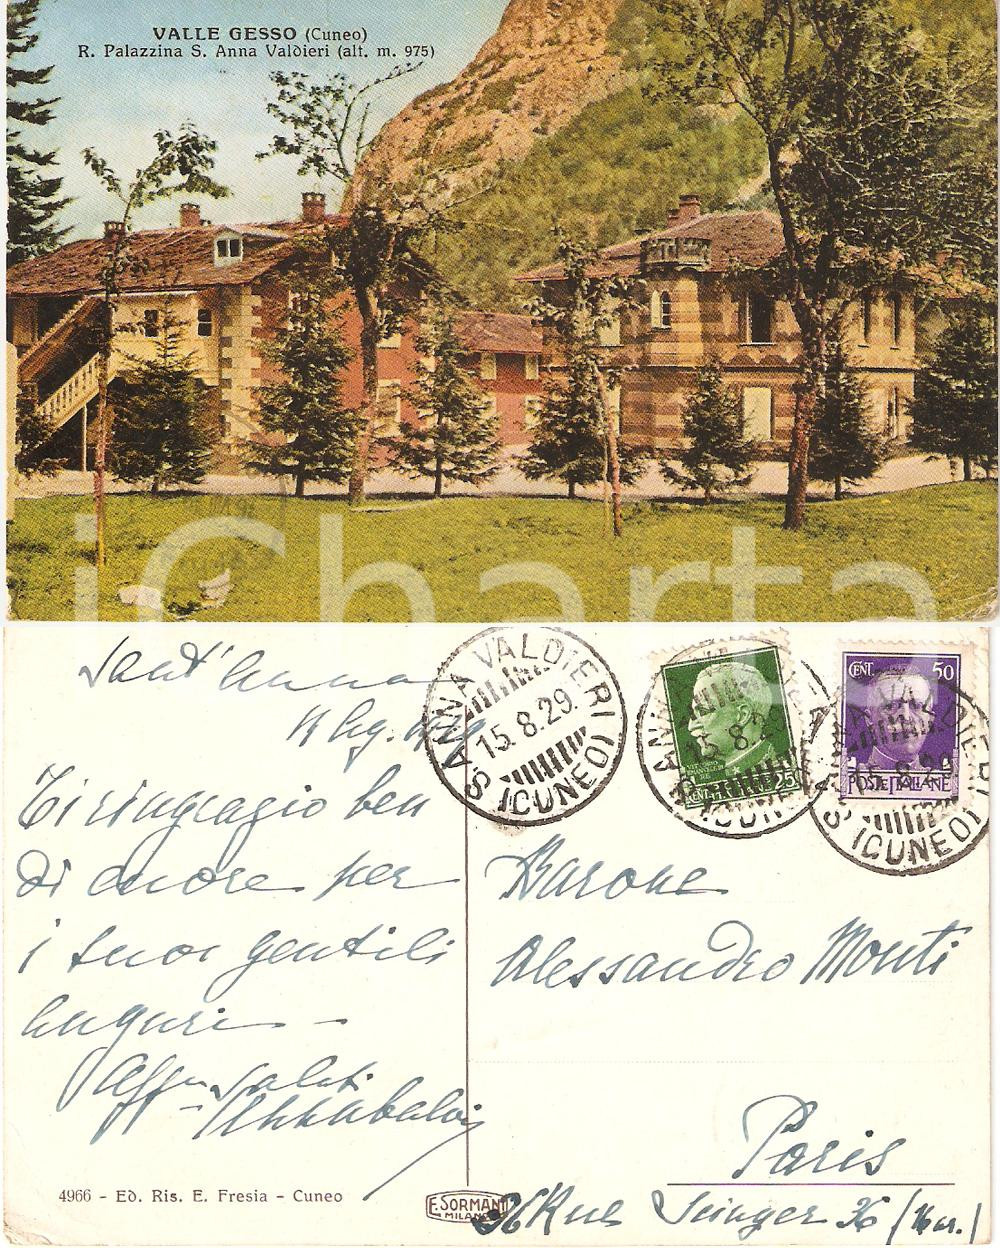 VALLE GESSO (Cuneo)
R. Palazzina S. Anna Valdieri (alt. m. 975)
iCharta
Sant'Anna
Ti ringrazio ben
di cuore per
i tuoi gentili
Auguri –
Aff. saluti
S. ANNA VALDIERI
15.8.29.
(CUNEO)
VITTORIO EMANUELE III RE
CENT. 25
CENT. 50
POSTE ITALIANE
Barone
Alessandro Monti
Paris
36 Rue Singer 36
4966 - Ed. Ris. E. Fresia - Cuneo
E. SORMANI
MILANO